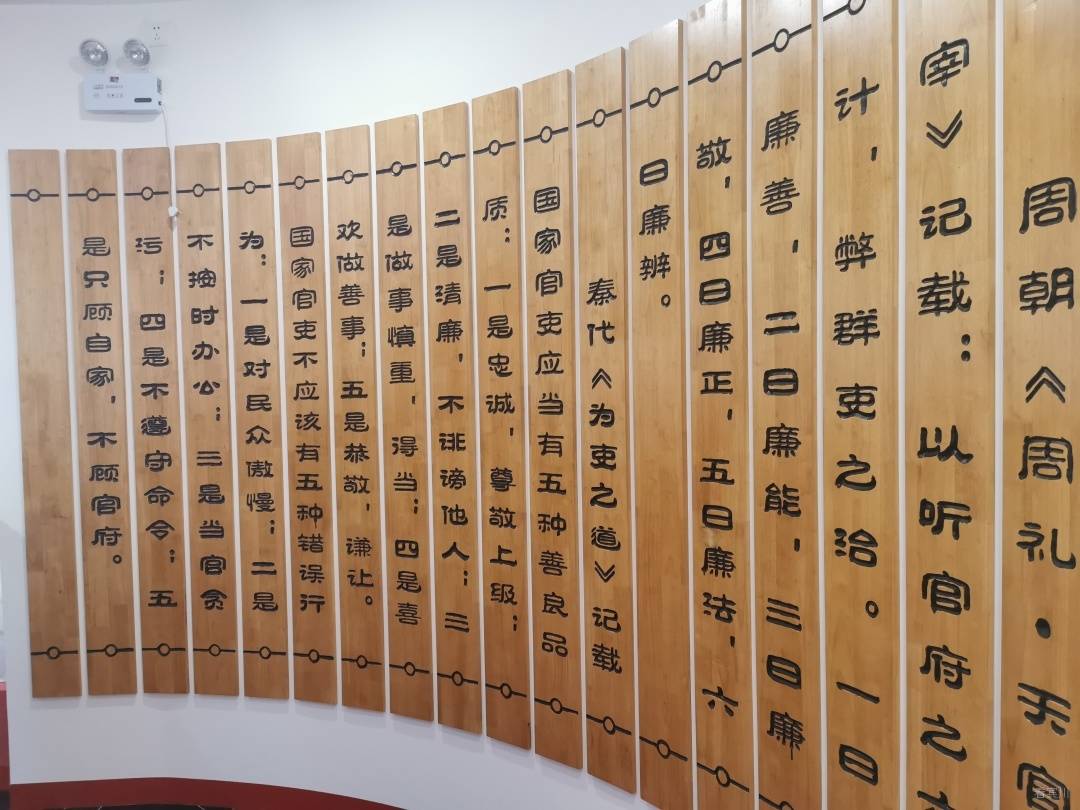 周朝《周礼·天官
宰》记载：以听官府之
计，弊群吏之治。一曰
廉善，二曰廉能，三曰廉
敬，四曰廉正，五曰廉法，六
曰廉辨。
秦代《为吏之道》记载
国家官吏应当有五种善良品
质：一是忠诚，尊敬上级；
二是清廉，不诽谤他人；三
是做事慎重，得当；四是喜
欢做善事；五是恭敬，谦让。
国家官吏不应该有五种错误行
为：一是对民众傲慢；二是
不按时办公；三是当官贪
污；四是不遵守命令；五
是只顾自家，不顾官府。